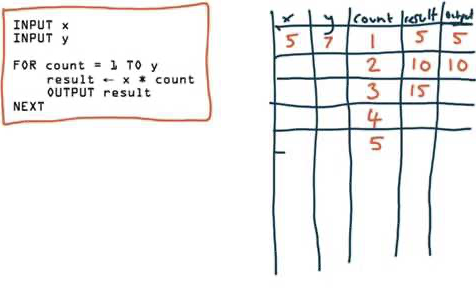 INPUT x
INPUT y
FOR count = 1 TO y
result ← x * count
OUTPUT result
NEXT
x y count result output
5 7 1 5 5
2 10 10
3 15
4
5